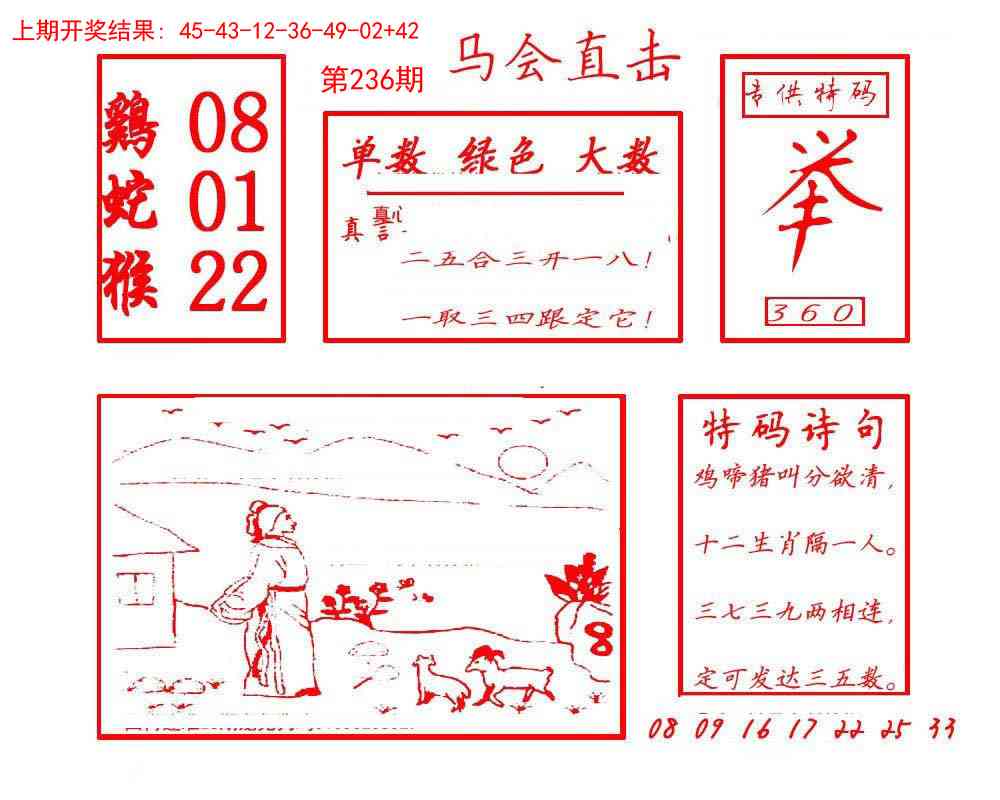 上期开奖结果: 45-43-12-36-49-02+42
马会直击
第236期
鷄 08
蛇 01
猴 22
单数 绿色 大数
真
真心
言
二五合三开一八!
一取三四跟定它!
专供特码
举
360
8
特码诗句
鸡啼猪叫分欲清,
十二生肖隔一人。
三七三九两相连,
定可发达三五数。
08 09 16 17 22 25 33